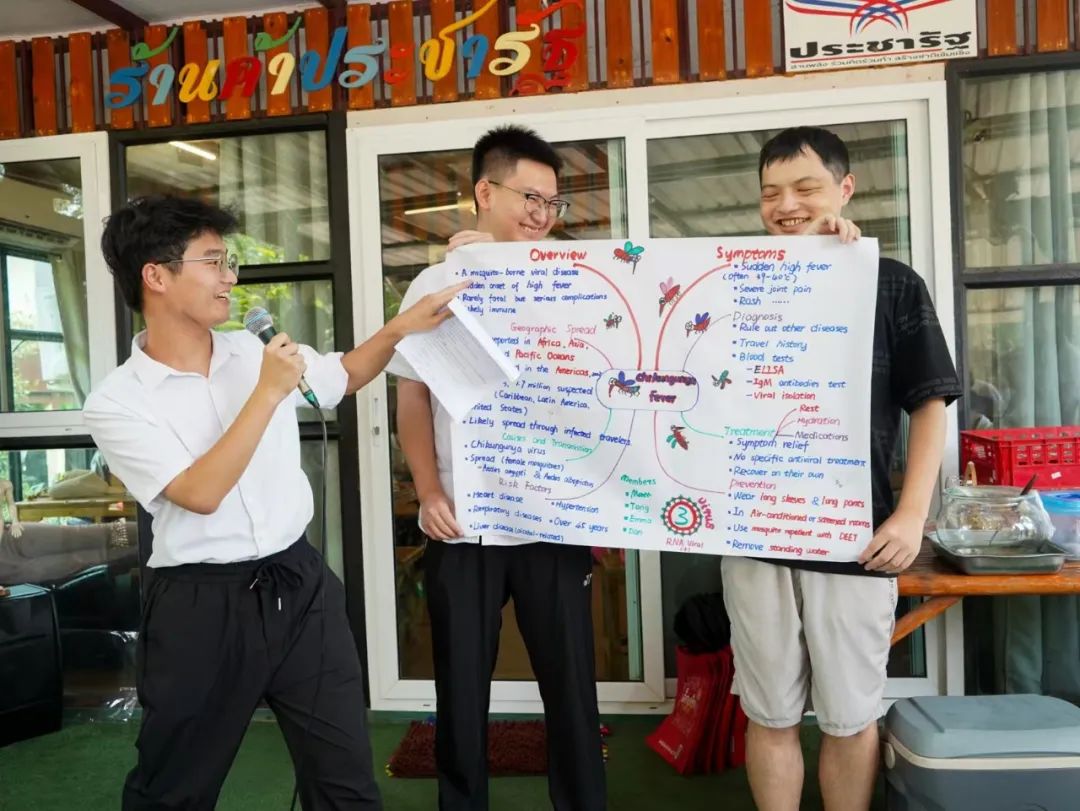 ร้านค้าประชารัฐ
ประชารัฐ
Overview
• A mosquito-borne viral disease
onset of high fever
Rarely fatal but serious complications
immune
Geographic Spread
in Africa, Asia,
Pacific Oceans
in the Americas,
.7 million suspected
(Caribbean, Latin America,
United States)
• Likely spread through infected travelers
Causes and Transmission
• Chikungunya virus
• Spread (female mosquitoes)
- Aedes & Aedes
Risk Factors
• Heart disease
• Hypertension
• Respiratory diseases
• Over 65 years
• Liver disease
Chikungunya
fever
Members
Tang
Emma
3
Virus
RNA Viral
Symptoms
• Sudden high fever
(Often 39-40°C)
• Severe joint pain
• Rash ......
Diagnosis
• Rule out other diseases
• Travel history
• Blood tests
- ELISA
- IgM antibodies test
- Viral isolation
Treatment
Rest
Hydration
Medications
• Symptom relief
• No specific antiviral treatment
• Recover on their own
Prevention
• Wear long sleeves & long pants
• In Air-conditioned or screened rooms
• Use mosquito repellent with DEET
• Remove standing water